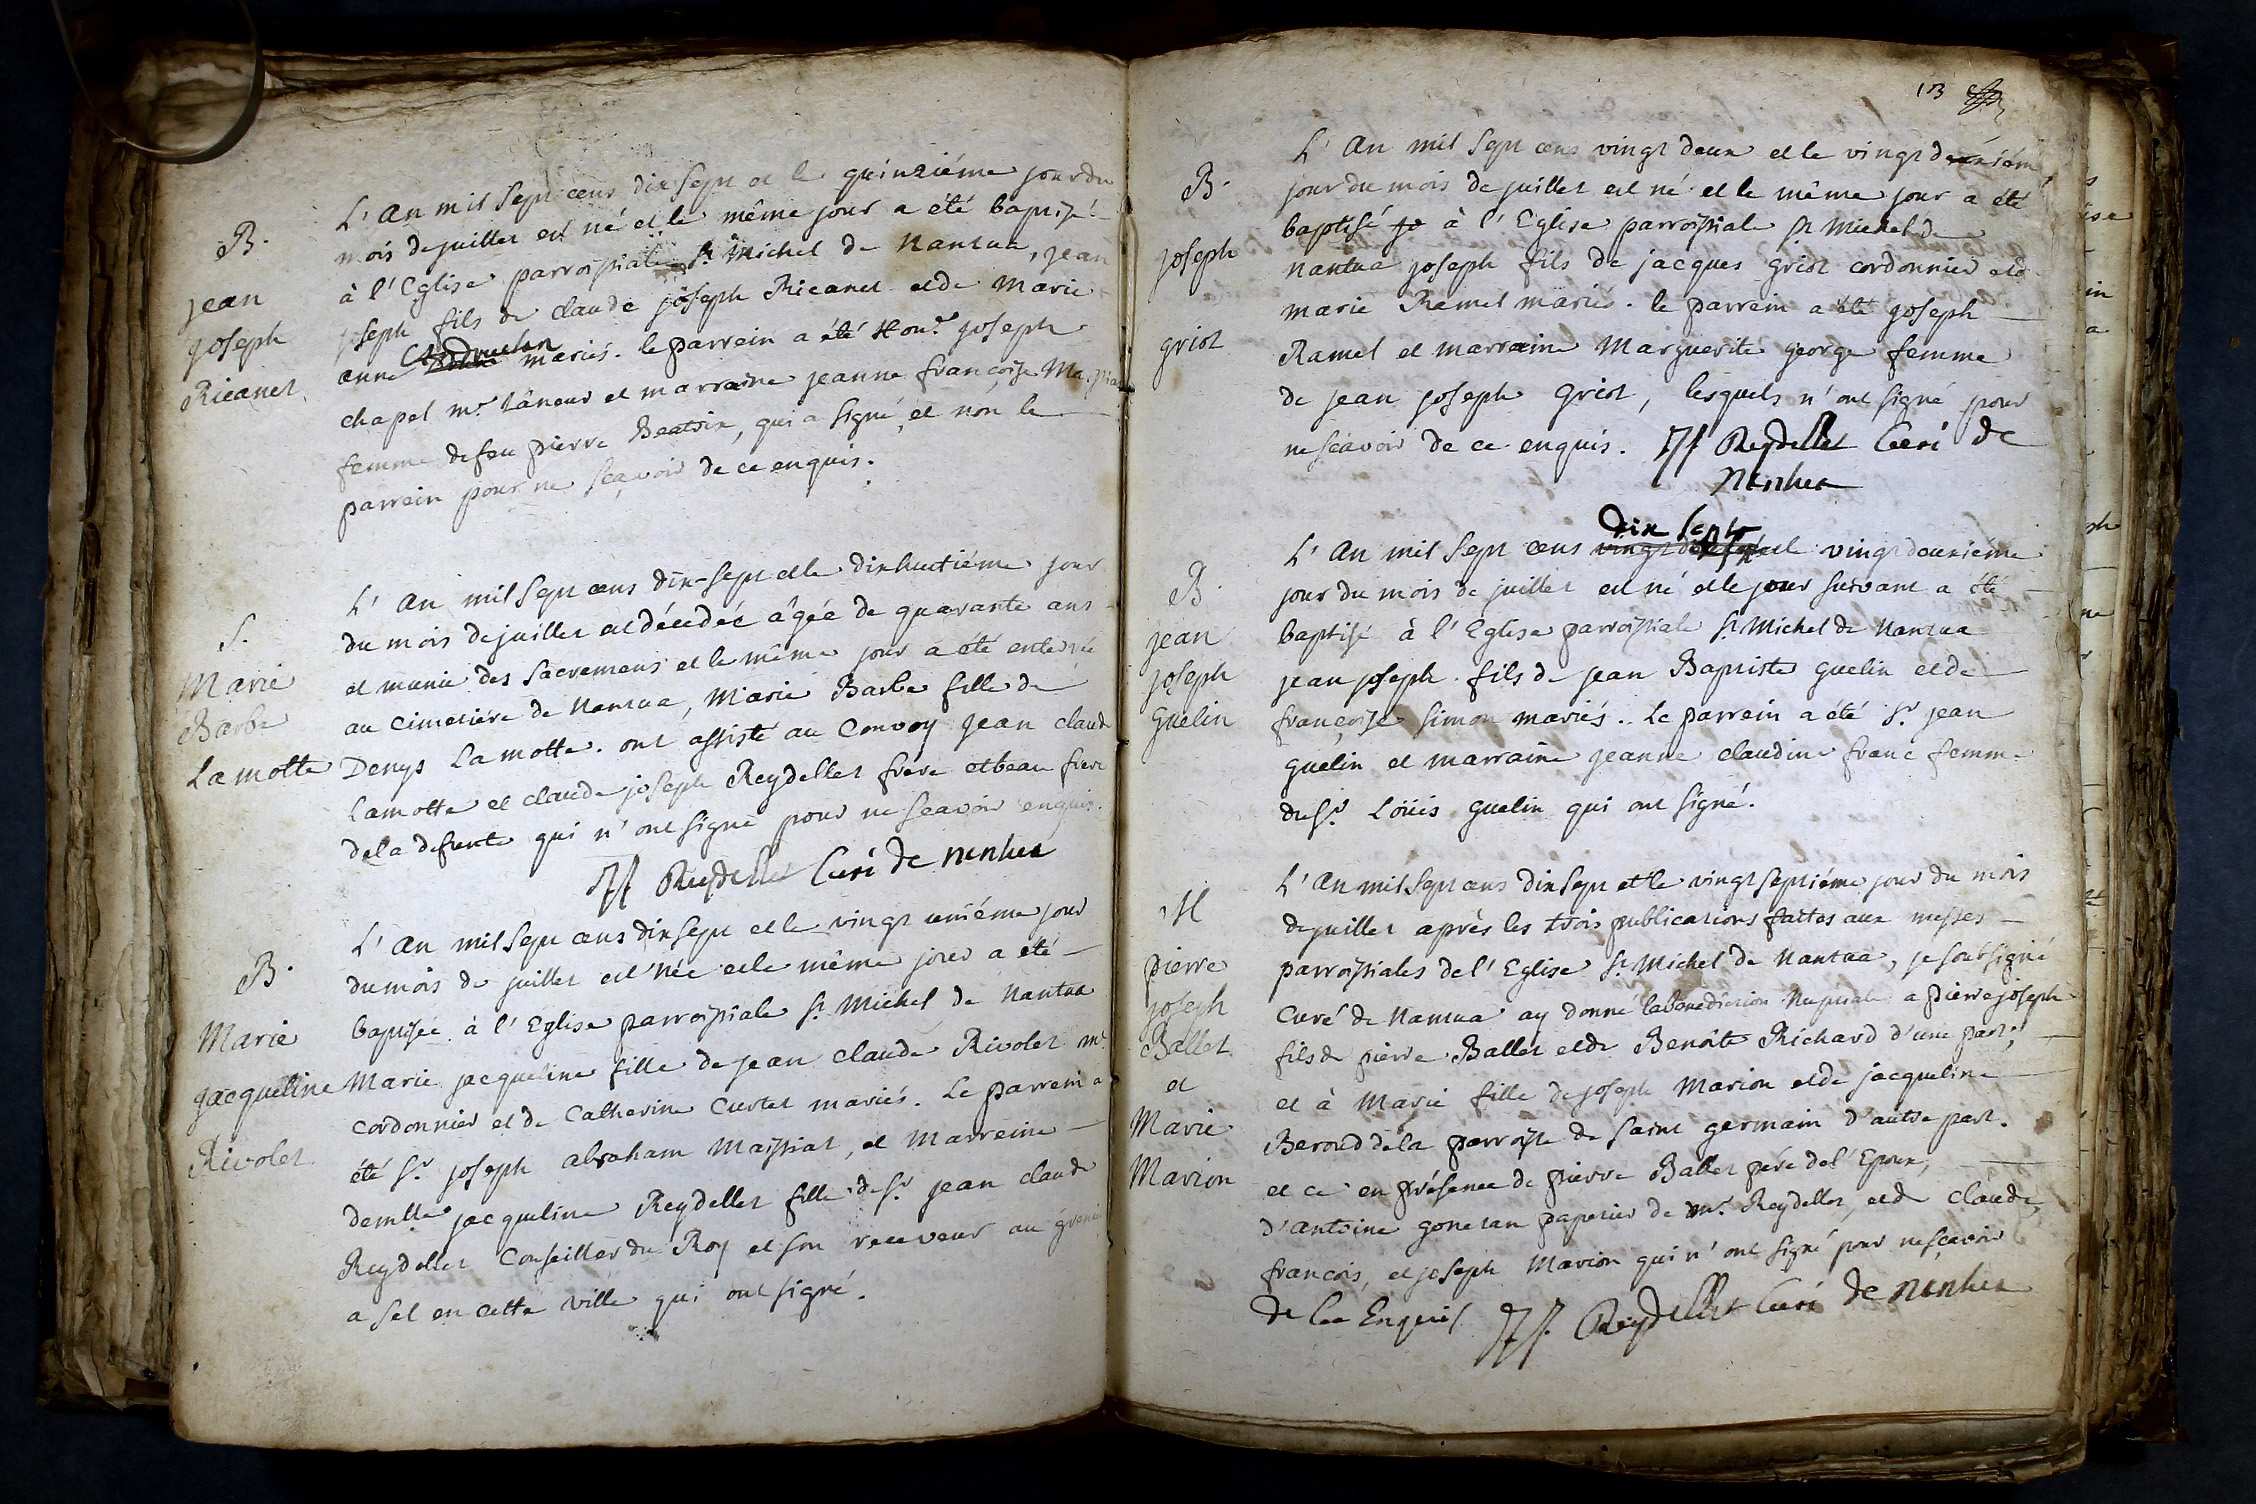 B.
jean
joseph
Ricanet
L'An mil Sept cens dix sept et le quinziéme jour du
mois de juillet est né et le même jour a été baptisé
à l'Eglise parroissiale St Michel de Nantua, jean
joseph fils de claude joseph Ricanet et de Marie
anne mariés. le parrein a été Honr. joseph
chapel mr. tâneur et marraine jeanne françoise
femme de feu pierre Beatrix, qui a signé, et non le
parrein pour ne sçavoir de ce enquis.
S.
Marie
Barbe
Lamotte
L'An mil Sept cens dix-sept et le dix huitiéme jour
du mois de juillet est décédée âgée de quarante ans
et munie des Sacremens et le même jour a été enterrée
au cimetiére de Nantua, Marie Barbe fille de
Denys Lamotte. ont assisté au Convoy jean claude
Lamotte et claude joseph Reydellet frere et beau frere
de la defunte qui n'ont signé pour ne sçavoir enquis.
JJ Reydellet Curé de nentua
B.
Marie
jacqueline
Rivolet
L'An mil Sept cens dix sept et le vingt uniéme jour
du mois de juillet est née et le même jour a été
baptisée à l'Eglise parroissiale St. Michel de Nantua
Marie jacqueline fille de jean claude Rivolet mr.
cordonnier et de Catherine Curtet mariés. Le parrein a
été Sr. joseph abraham Maissiat, et Marreine
demlle jacqueline Reydellet fille de Sr. jean claude
Reydellet Conseiller du Roy et son receveur au grenier
a sel en cette ville qui ont signé.
13
B.
joseph
griot
L'An mil Sept cens vingt deux et le vingt deuxiém
jour du mois de juillet est né et le même jour a été
baptisé jo à l'Eglise parroissiale St Michel de
Nantua joseph fils de jacques griot cordonnier et de
marie Ramel mariés. le parrein a été joseph
Ramel et marraine Marguerite george femme
de jean joseph Griot, lesquels n'ont signé pour
ne sçavoir de ce enquis. JJ Reydellet Curé de
Nentua
B.
jean
joseph
Guelin
dix sept
L'An mil Sept cens vingt deux et le vingt deuxiéme
jour du mois de juillet est né et le jour suivant a été
baptisé à l'Eglise parroissiale St. Michel de Nantua
jean joseph fils de jean Baptiste guelin et de
françoise Simon mariés. Le parrein a été Sr. jean
guélin et marraine jeanne claudine franc femme
du Sr. Loüis guelin qui ont signé.
M
pierre
joseph
Ballet
et
Marie
Marion
L'An mil Sept cens dix sept et le vingt septiéme jour du mois
de juillet aprés les trois publications faites aux messes
parroissiales de l'Eglise St. Michel de Nantua, je soussigné
Curé de Nantua ay donné la benediction Nuptiale a pierre joseph
fils de pierre Ballet et de Benoîte Richard d'une part,
et à Marie fille de joseph Marion et de jacqueline
Beroud de la parroisse de Saint germain d'autre part.
et ce en présence de pierre Ballet pére de l'Epoux,
d'antoine gonetan papetier de mr. Reydellet, et de claude,
francois, et joseph Marion qui n'ont signé pour ne sçavoir
de Ce Enquis JJ. Reydellet Curé de nentua